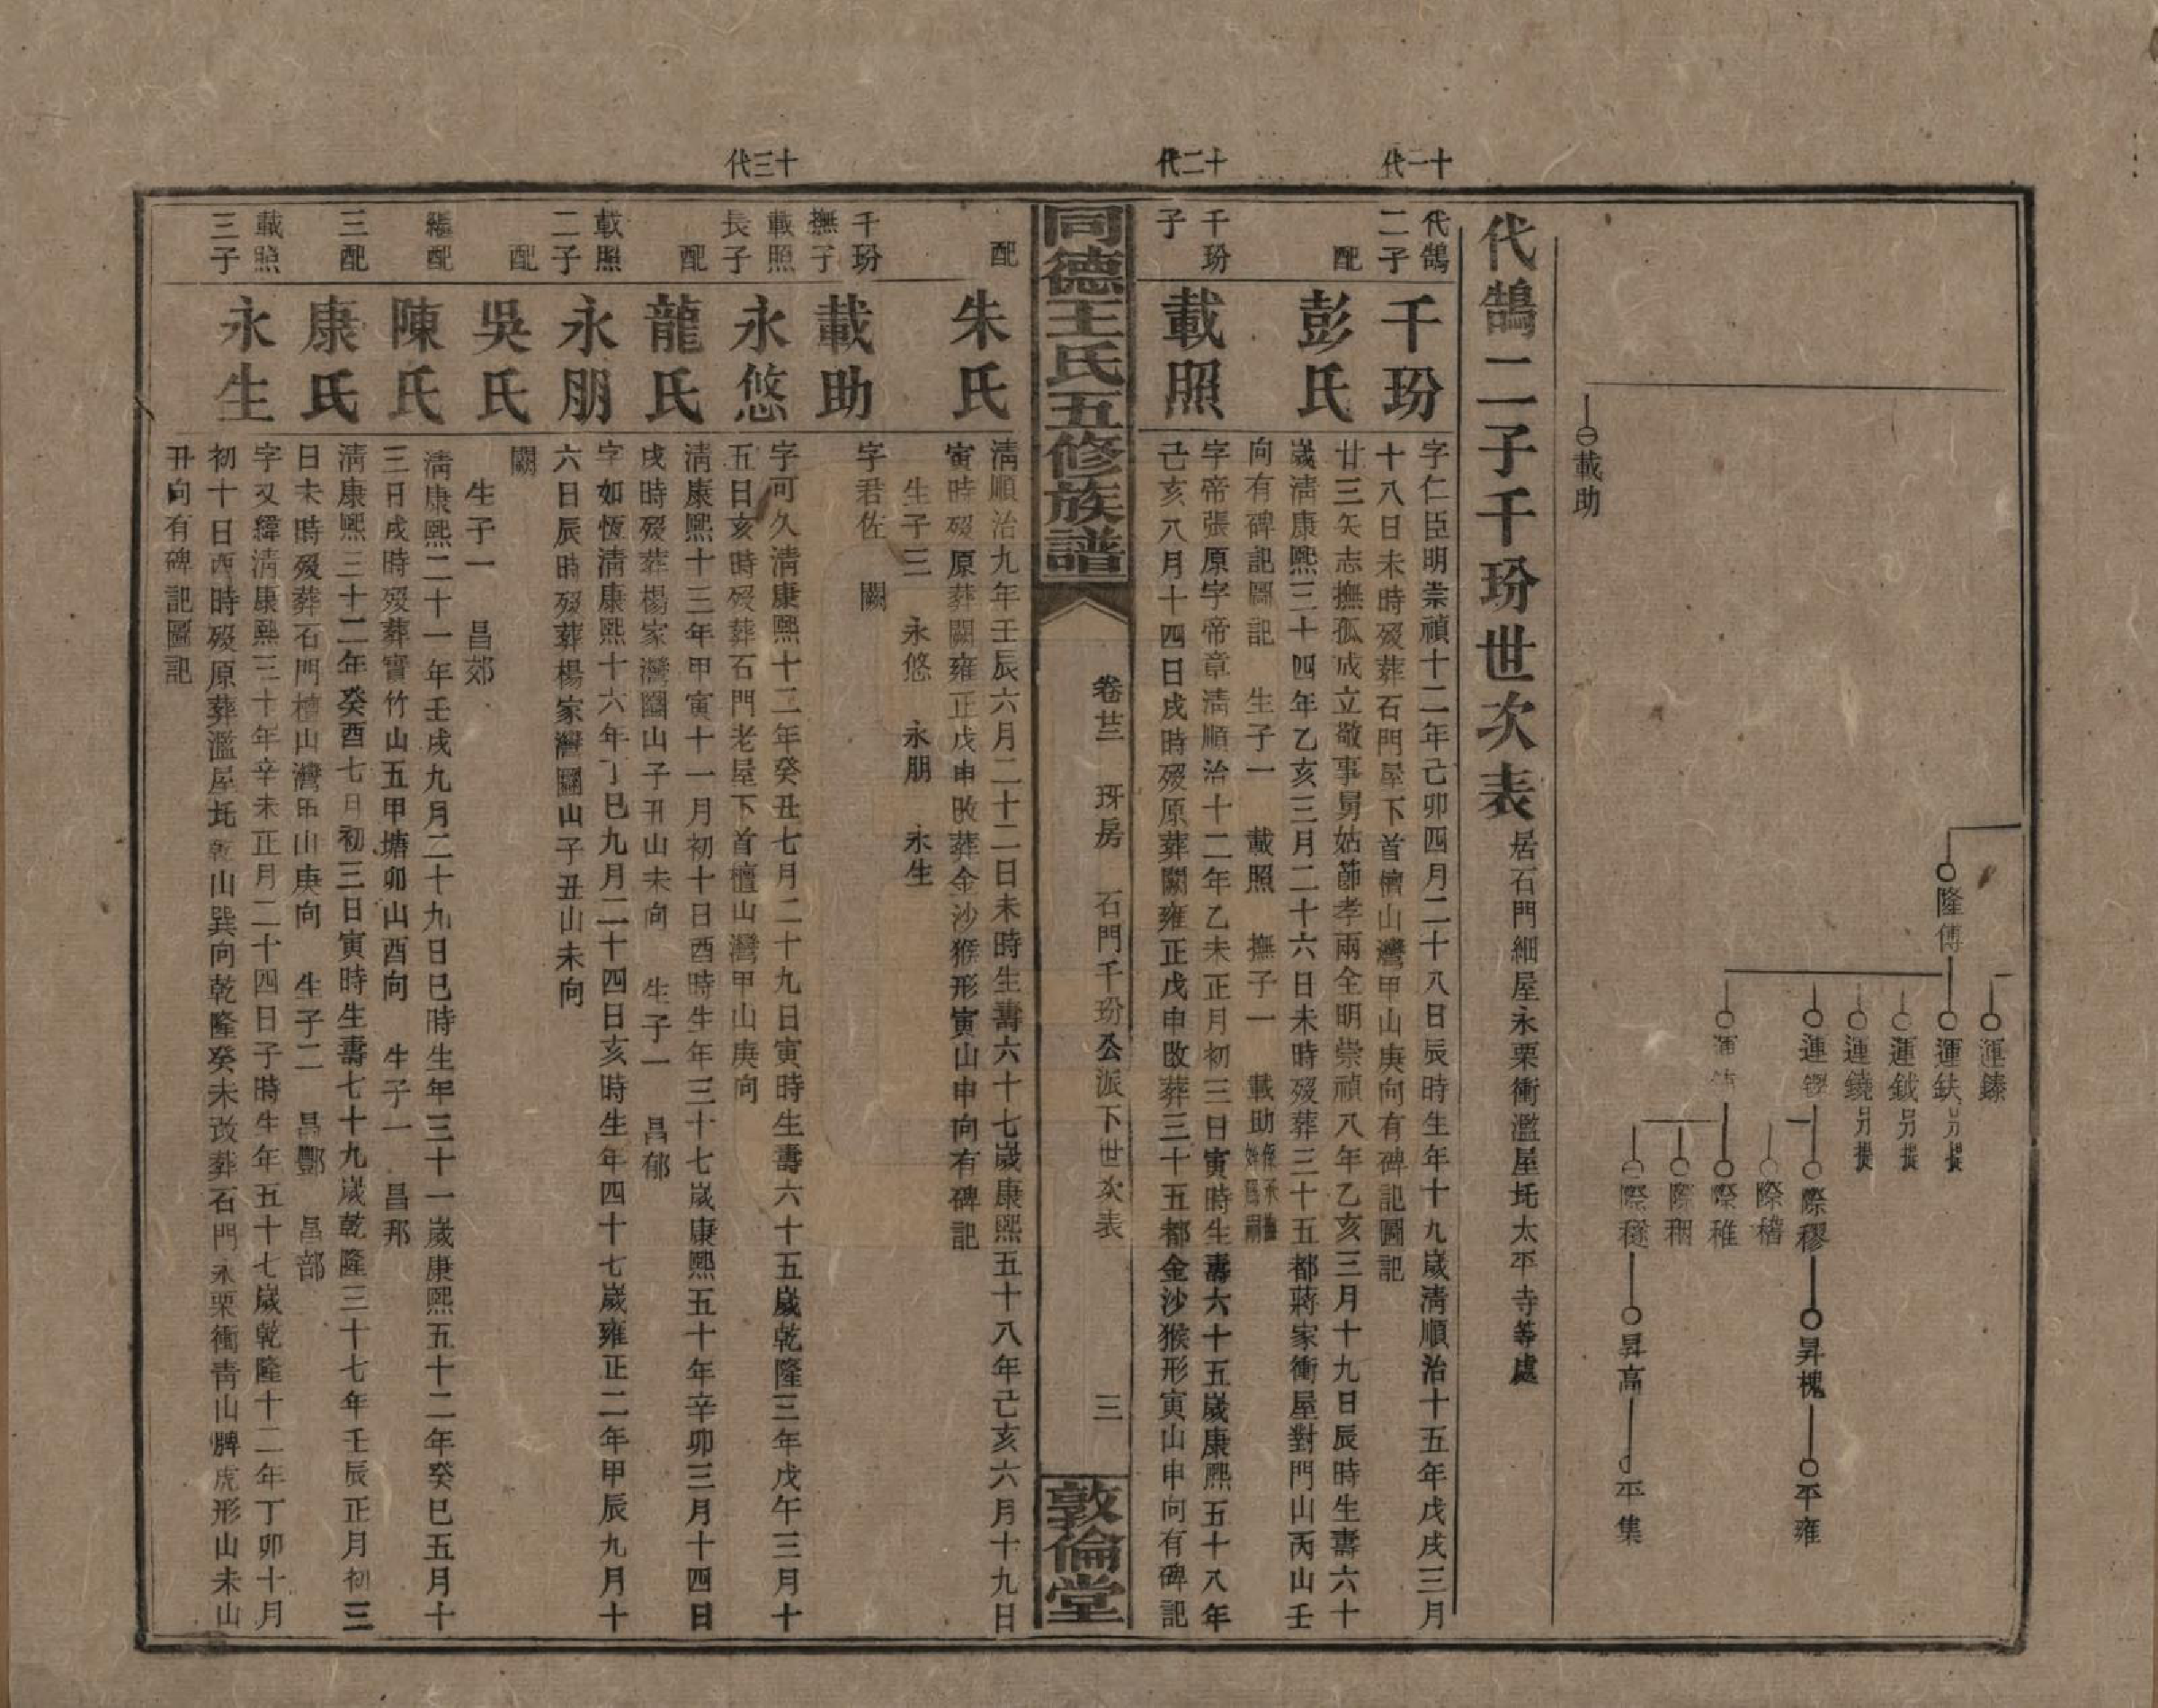 載助
隆傅
運鎵
運鈇另提
運鉞另提
運鐃另提
運鏐
運
際穆
際稽
際稚
際稛
際穟
昇槐
平雍
昇高
平集
代鵠二子千玢世次表 居石門細屋永栗衝濫屋坉太平寺等處
十一代
代鵠
二子
千玢
字仁臣明崇禎十二年己卯四月二十八日辰時生年十九歲清順治十五年戊戌三月
十八日未時歿葬石門屋下首檀山灣甲山庚向有碑記圖記
配
彭氏
廿三矢志撫孤成立敬事舅姑節孝兩全明崇禎八年乙亥三月十九日辰時生壽六十
歲清康熙三十四年乙亥三月二十六日未時歿葬三十五都蔣家衝屋對門山丙山壬
向有碑記圖記 生子一 載照 撫子一 載助
十二代
千玢
子
載照
字帝張原字帝章清順治十二年乙未正月初三日寅時生壽六十五歲康熙五十八年
己亥八月十四日戌時歿原葬闕雍正戊申改葬三十五都金沙猴形寅山申向有碑記
同德王氏五修族譜
卷廿三 玡房 石門千玢公派下世次表 三
敦倫堂
配
朱氏
清順治九年壬辰六月二十二日未時生壽六十七歲康熙五十八年己亥六月十九日
寅時歿原葬闕雍正戊申改葬金沙猴形寅山申向有碑記
生子三 永悠 永朋 永生
千玢
撫子
載助
字君佐 闕
十三代
載照
長子
永悠
字可久清康熙十二年癸丑七月二十九日寅時生壽六十五歲乾隆三年戊午三月十
五日亥時歿葬石門老屋下首檀山灣甲山庚向
配
龍氏
清康熙十三年甲寅十一月初十日酉時生年三十七歲康熙五十年辛卯三月十四日
戌時歿葬楊家灣圝山子丑山未向 生子一 昌郁
載照
二子
永朋
字如恆清康熙十六年丁巳九月二十四日亥時生年四十七歲雍正二年甲辰九月十
六日辰時歿葬楊家灣圝山子丑山未向
配
吳氏
闕
生子一 昌郊
繼配
陳氏
清康熙二十一年壬戌九月二十九日巳時生年三十一歲康熙五十二年癸巳五月十
三日戌時歿葬實竹山五甲塘卯山酉向 生子一 昌邦
三配
康氏
清康熙三十二年癸酉七月初三日寅時生壽七十九歲乾隆三十七年壬辰正月初三
日未時歿葬石門檀山灣甲山庚向 生子二 昌酆 昌部
載照
三子
永生
字又緯清康熙三十年辛未正月二十四日子時生年五十七歲乾隆十二年丁卯十月
初十日酉時歿原葬濫屋坉乾山巽向乾隆癸未改葬石門永栗衝青山髀虎形山未山
丑向有碑記圖記